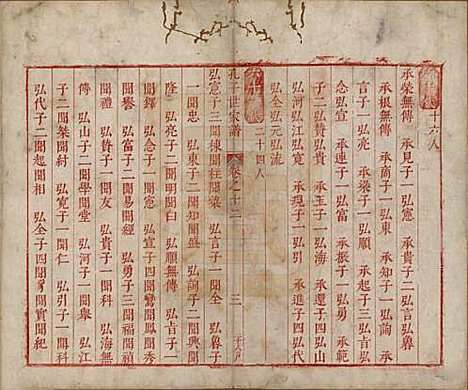 十六人
承榮無傳　承見子一弘憲　承貴子二弘言弘彝
承根無傳　承商子一弘東　承知子一弘詢　承
亮子一弘亮　承梁子一弘順　子三弘吉弘
念弘　承連子一弘富　承振子一弘勇　承範
子二弘贊弘貴　承玉子一弘海　承還子四弘山
弘河弘江弘寬　承現子一弘引　承進子四弘代
弘全弘元弘流
二十四人
孔子世家譜　卷之十二　三
弘憲子三聞棟聞柱聞梁　弘言子一聞全　弘彝子
一聞忠　弘東子二聞知聞盛　弘詢子二聞興聞
隆　弘亮子二聞明聞白　弘順無傳　弘吉子一
聞鐸　弘念子一聞憲　弘宣子四聞鸞聞鳳聞秀
聞譽　弘富子二聞易聞經　弘勇子三聞福聞禎
聞禮　弘贊子一聞　弘貴子一聞　弘海無
傳　弘山子二聞學聞堂　弘河子一聞舉　弘江
子二聞桀聞紂　弘寬子一聞仁　弘引子一聞科
弘代子二聞起聞相　弘全子四聞聞實聞紀